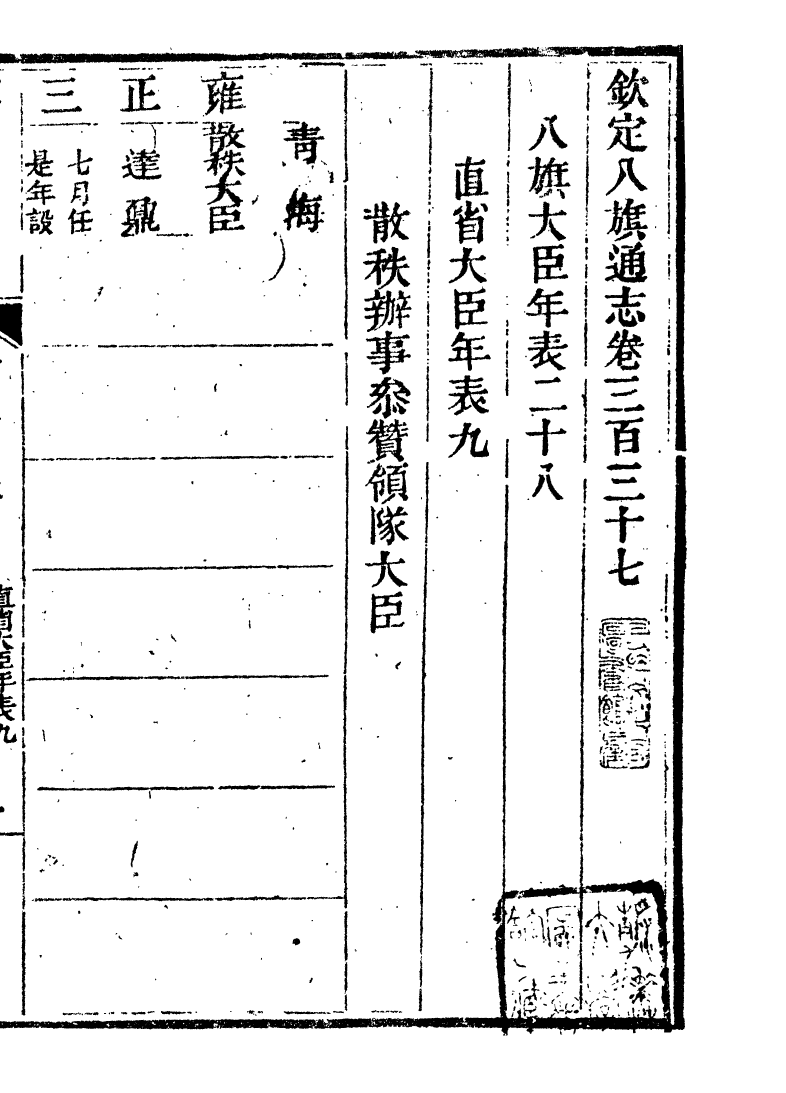 欽定八旗通志卷三百三十七
八旗大臣年表二十八
直省大臣年表九
散秩辦事叅贊領隊大臣
青海
雍
散秩大臣
正
達鼐
三
七月任
是年設
直省大臣年表九